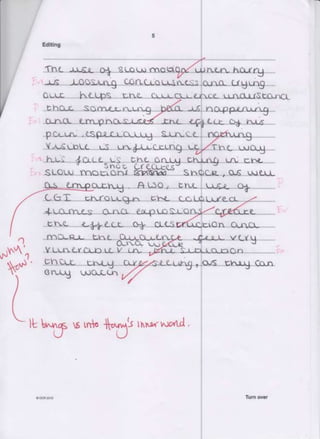 5
Editing
The use of slow motion when harry
Ex is loosing conciousness and crying
out helps the audience understand
that something bad is happening
Ex and emphasises the effect of his
pain, especially since nothing
visible is inflicting it. The way
Ex his face is the only thing in the
shot creates
slow motion shock, as well
as empathy. Also, the use of
CGI through the coloured
flames and explosions create
the effect of destruction and
make the audience feel very
and weak
vulnerable in the situation
that they are seeing, as they can
only watch.
Why?
How?
It brings us into Harry's inner world.
Turn over